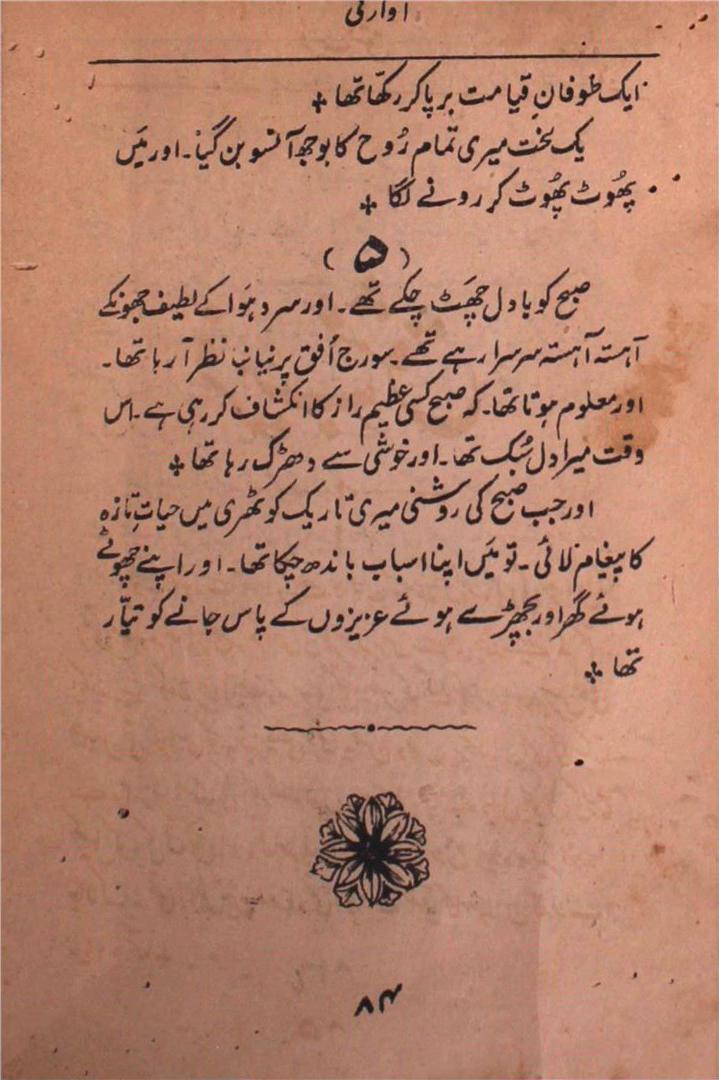 آوارگی
ایک طوفانِ قیامت برپا کر رکھّا تھا ٭
یک لخت میری تمام رُوح کا بوجھ آنسو بن گیا۔ اور مَیں
پھُوٹ پھُوٹ کر رونے لگا ٭
(۵)
صبح کو بادل چھَٹ چکے تھے۔ اور سرد ہَوا کے لطیف جھونکے
آہستہ آہستہ سرسرا رہے تھے۔ سورج اُفق پر نیا نیا نظر آ رہا تھا۔
اور معلوم ہوتا تھا۔ کہ صبح کسی عظیم راز کا انکشاف کر رہی ہے۔ اس
وقت میرا دل سُبک تھا۔ اور خوشی سے دھڑک رہا تھا ٭
اور جب صبح کی روشنی میری تاریک کوٹھری میں حیاتِ تازہ
کا پیغام لائی۔ تو مَیں اپنا اسباب باندھ چکا تھا۔ اور اپنے چھوٹے
ہوئے گھر اور بچھڑے ہوئے عزیزوں کے پاس جانے کو تیّار
تھا ٭
۸۴